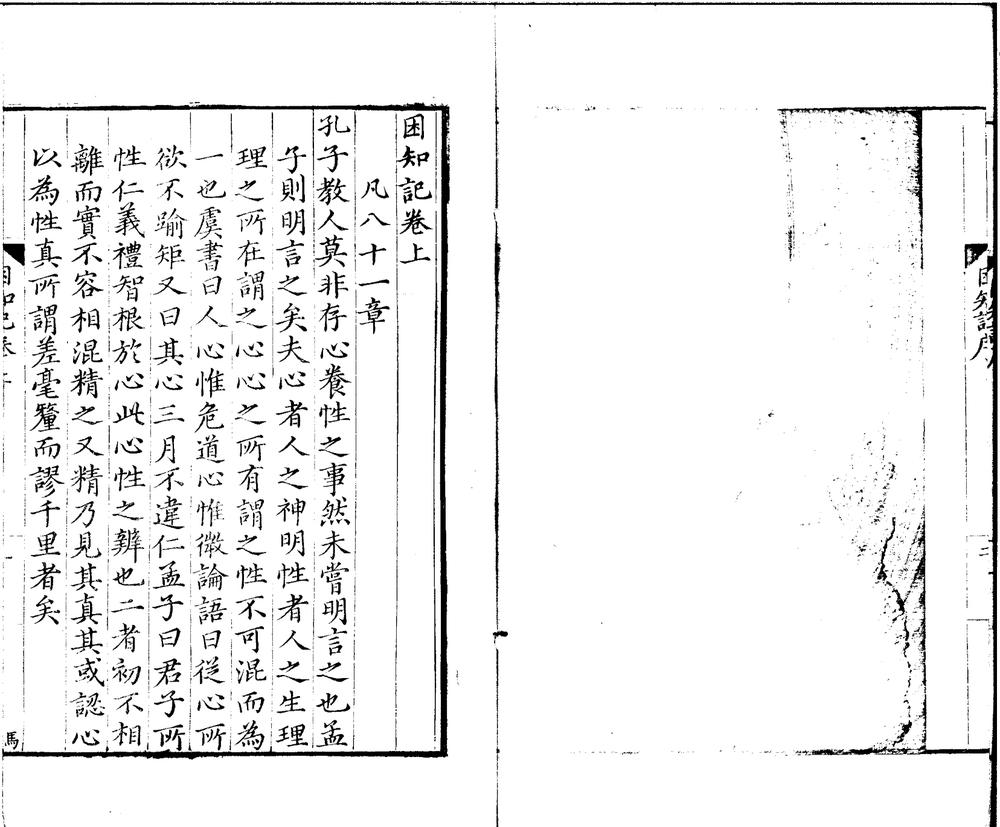 困知記序
三
困知記卷上
凡八十一章
孔子教人莫非存心養性之事然未嘗明言之也孟
子則明言之矣夫心者人之神明性者人之生理
理之所在謂之心心之所有謂之性不可混而為
一也虞書曰人心惟危道心惟微論語曰從心所
欲不踰矩又曰其心三月不違仁孟子曰君子所
性仁義禮智根於心此心性之辨也二者初不相
離而實不容相混精之又精乃見其真其或認心
以為性真所謂差毫釐而謬千里者矣
一
馬